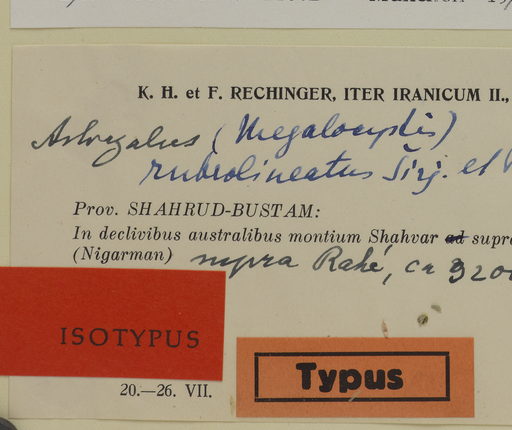 K. H. et F. RECHINGER, ITER IRANICUM II.,
Astragalus (Megalocystis)
rubrolineatus Širj. et
Prov. SHAHRUD-BUSTAM:
In declivibus australibus montium Shahvar ad supra
(Nigarman) supra Rahé, ca 320
ISOTYPUS
Typus
20.—26. VII.